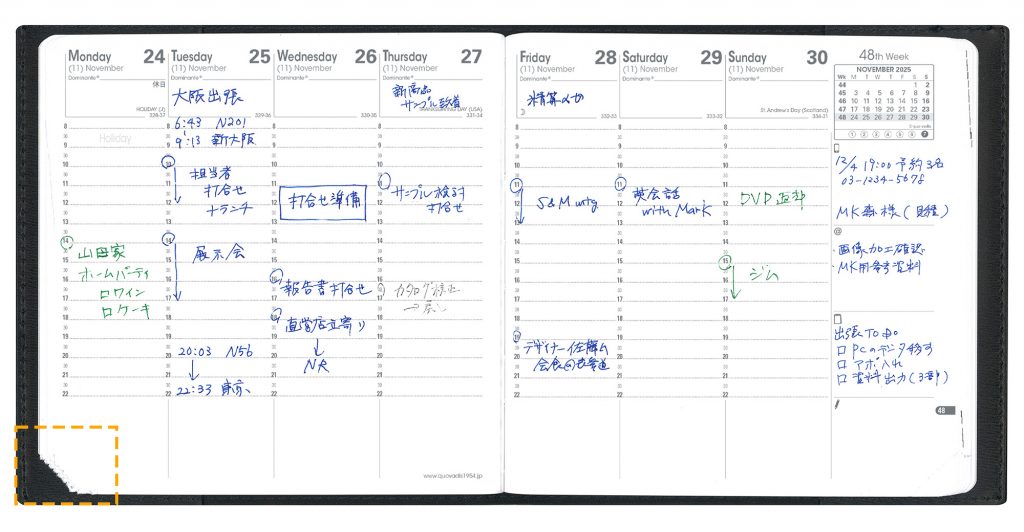 Monday 24
(11) November
Dominante®
休日
HOLIDAY (J)
328-37
Holiday
山田家
ホームパーティ
ロワイン
ロケーキ
Tuesday 25
(11) November
Dominante®
大阪出張
329-36
6:43 N201
9:13 新大阪
10
担当者
打合せ
+ランチ
14
展示会
20:03 N56
22:33 東京
Wednesday 26
(11) November
Dominante®
330-35
打合せ準備
報告書打合せ
直営店立寄り
NR
Thursday 27
(11) November
Dominante®
新商品
サンプル
THANKSGIVING DAY (USA)
331-34
サンプル検討
打合せ
カタログ
www.quovadis1954.jp
Friday 28
(11) November
Dominante®
精算〆切
332-33
11
S&M mtg
デザイナー佐藤さん
会食@表参道
Saturday 29
(11) November
Dominante®
333-32
11
英会話
with Mark
Sunday 30
(11) November
Dominante®
St. Andrew's Day (Scotland)
334-31
DVD返却
15
ジム
8
9
10
11
12
13
14
15
16
17
18
19
20
21
22
48th Week
NOVEMBER 2025
Wk M T W T F S S
44 1 2
45 3 4 5 6 7 8 9
46 10 11 12 13 14 15 16
47 17 18 19 20 21 22 23
48 24 25 26 27 28 29 30
1 2 3 4 5 6 7
12/4 19:00 予約3名
03-1234-5678
MK森様(日経)
@
・画像加工確認
・MK用参考資料
出張TO DO
□ PCのデータ移す
□ アポ入れ
□ 資料出力(3部)
48